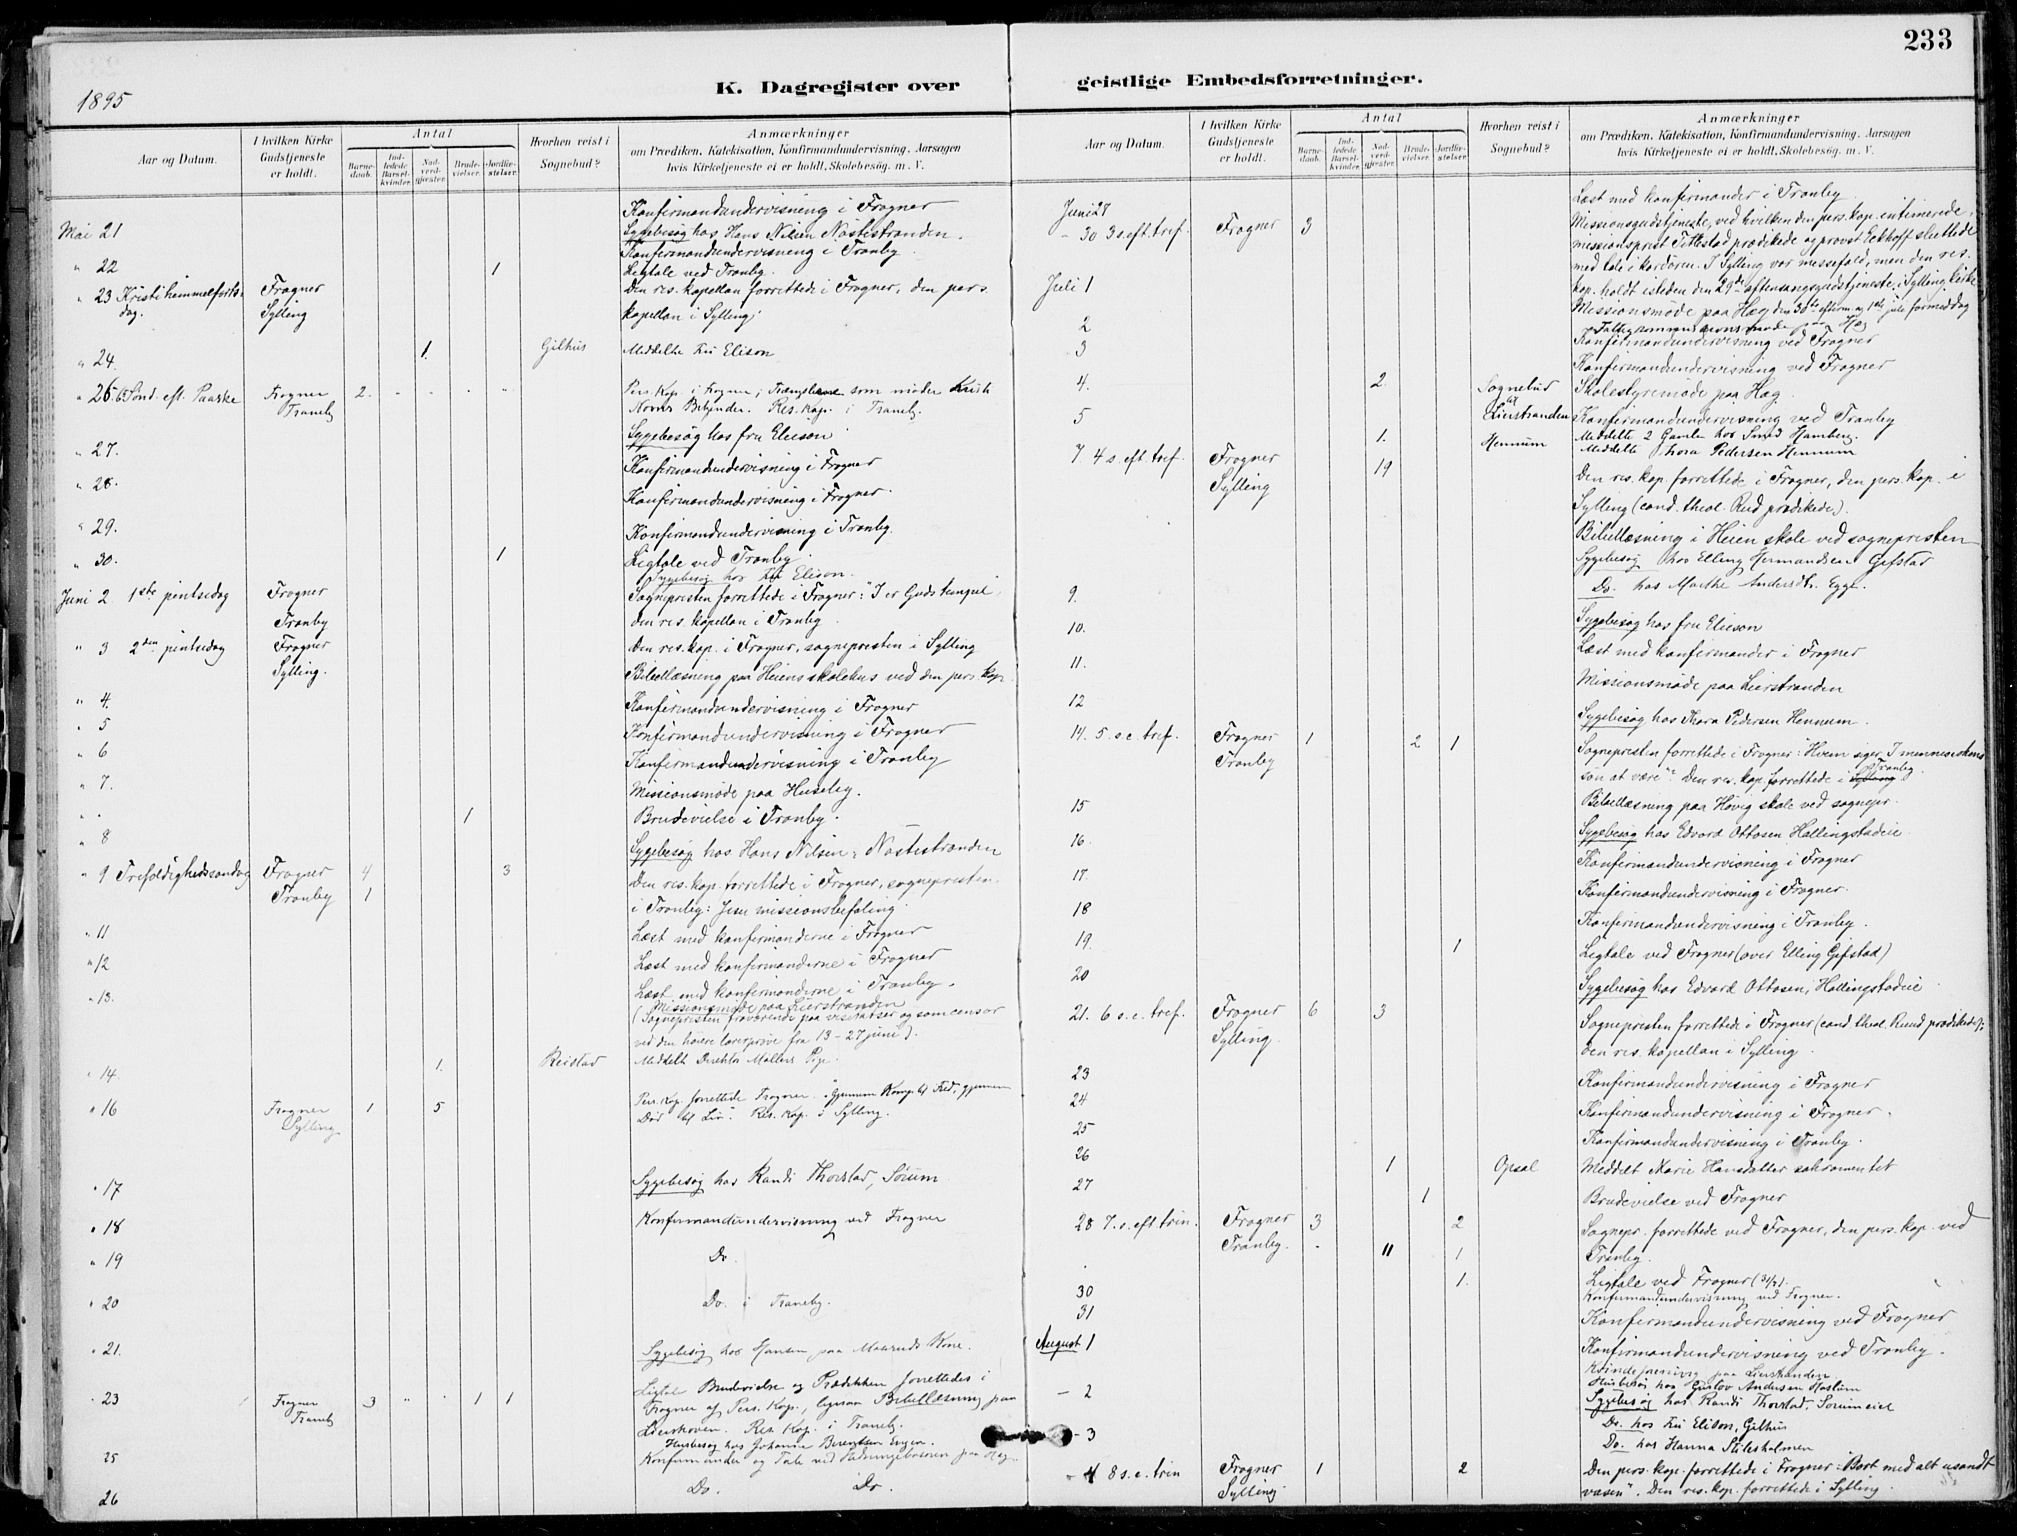 233
1895
K. Dagregister over geistlige Embedsforretninger.
Aar og Datum.
I hvilken Kirke Gudstjeneste er holdt.
Antal
Barnedaab.
Indledede Barselkvinder.
Nadverdgjæster.
Brudevielser.
Jordfæstelser.
Hvorhen reist i Sognebud?
Anmærkninger
om Prædiken, Katekisation, Konfirmandundervisning, Aarsagen
hvis Kirketjeneste ei er holdt, Skolebesøg. m. V.
Konfirmandundervisning i Frogner
Mai 21 Sygebesøg hos Hans Nilsen Nøstestranden.
Konfirmandundervisning i Tranby.
" 22 1 Ligtale ved Tranby.
" 23 Kristi himmelfarts- Frogner Den res. kapellan forrettede i Frogner, den pers.
dag. Sylling kapellan i Sylling.
" 24. 1. Gilhus Meddelte Fru Elison
" 26. 6 Sønd. eft. Paaske Frogner 2. Pers. Kap. i Frogner; som møder Kristi
Tranby Navns Bekjender. Res. Kap. i Tranby.
Sygebesøg hos fru Elieson
" 27. Konfirmandundervisning i Frogner
" 28. Konfirmandundervisning i Frogner.
" 29. Konfirmandundervisning i Tranby.
" 30. 1 Ligtale ved Tranby.
Sygebesøg hos Fru Elison.
Juni 2 1ste pintsedag Frogner Sognepresten forrettede i Frogner: "I er Guds tempel",
Tranby den res. kapellan i Tranby.
" 3 2den pintsedag Frogner Den res. kap. i Frogner, sognepresten i Sylling
Sylling. Bibellæsning paa Heiens skolehus ved den pers. kap.
" 4. Konfirmandundervisning i Frogner
" 5 Konfirmandundervisning i Frogner
" 6 Konfirmandundervisning i Tranby
" 7. Missionsmøde paa Huseby.
" " 1 Brudevielse i Tranby.
" 8 Sygebesøg hos Hans Nilsen, Nøstestranden
" 9 Trefoldighedssøndag Frogner 4 3 Den res. kap. forrettede i Frogner, sognepresten
Tranby 1 i Tranby: Jesu missionsbefaling.
" 11 Læst med konfirmanderne i Frogner
" 12 Læst med konfirmanderne i Frogner
" 13. Læst med konfirmanderne i Tranby.
Missionsmøde paa Lierstranden
(Sognepresten fraværende paa visitatser og som censor
ved den høiere lærerprøve fra 13-27 juni).
" 14. 1. Reistad Meddelt Direktør Møllers Pige
" 16 Frogner 1 5 Pers. Kap. forrettede Frogner. "Gjennem Kamp til Fred, gjennem
Sylling Død til Liv". Res. Kap. i Sylling.
" 17 Sygebesøg hos Randi Thorstad, Sørum
" 18 Konfirmandundervisning ved Frogner
" 19 Do.
" 20 Do. i Tranby.
" 21. Sygebesøg hos Hansen paa Kone.
" 23 Frogner 3 1 1 Ligtale Brudevielse og Prædiken forrettedes i
Tranby Frogner af Pers. Kap., ligesaa Bibellæsning paa
Lierskoven. Res. Kap. i Tranby.
Husbesøg hos Johanne Berentsen
25 Konfirmander og Tale ved paa Hæg.
26 Do. Do.
Aar og Datum.
I hvilken Kirke Gudstjeneste er holdt.
Antal
Barnedaab.
Indledede Barselkvinder.
Nadverdgjæster.
Brudevielser.
Jordfæstelser.
Hvorhen reist i Sognebud?
Anmærkninger
om Prædiken, Katekisation, Konfirmandundervisning, Aarsagen
hvis Kirketjeneste ei er holdt, Skolebesøg. m. V.
Juni 27 Læst med konfirmander i Tranby
- 30 3 s. eft. tref. Frogner 3 Missionsgudstjeneste, ved hvilken den pers. kap. intimerede,
missionsprest Tittestad prædikede og provst Eckhoff sluttede
med tale i kordøren. I Sylling var messefald, men den res.
Juli 1 kap. holdt isteden den 29de aftensangsgudstjeneste i Sylling kirke
Missionsmøde paa Hæg den 30te efterm. og 1ste juli formiddag
2 paa Hæg
3 Konfirmandundervisning ved Frogner
Konfirmandundervisning ved Frogner
4. 2 Sognebud Skolestyremøde paa Hæg.
5 til Lierstranden Konfirmandundervisning ved Tranby
1. Meddelte 2 Gamle hos Hamberg.
Hennum Meddelte Thora Pedersen Hennum
7 4 s. eft. tref. Frogner 19 Den res. kap. forrettede i Frogner, den pers. kap. i
Sylling Sylling (cand. theol. Rud prædikede).
Bibellæsning i Heien skole ved sognepresten
Sygebesøg hos Elling Hermandsen Gifstad
9. Do. hos Marthe Andersdt. Egge.
10. Sygebesøg hos fru Elieson
11. Læst med konfirmander i Frogner
Missionsmøde paa Lierstranden
12 Sygebesøg hos Thora Pedersen Hennum.
14. 5. s. e. tref. Frogner 1 2 1 Sognepresten forrettede i Frogner: "Hvem siger I menneskens
Tranby søn at være". Den res. kap. forrettede i Sylling Tranby.
15 Bibellæsning paa Høvig skole ved sognepr.
16. Sygebesøg hos Edvard Ottosen Hallingstadeie.
17. Konfirmandundervisning i Frogner
18 Konfirmandundervisning i Frogner.
19. Konfirmandundervisning i Tranby.
20 1 Ligtale ved Frogner (over Elling Gifstad)
Sygebesøg hos Edvard Ottosen, Hallingstadeie.
21. 6 s. e. tref. Frogner 6 3 Sognepresten forrettede i Frogner (cand. theol. Ruud prædikede);
Sylling. den res. kapellan i Sylling.
23 Konfirmandundervisning i Frogner
24 Konfirmandundervisning i Frogner.
25 Konfirmandundervisning i Tranby.
26 1 Opsal Meddelt Marie Hansdatter sakramentet
27 1 Brudevielse ved Frogner
28 7. s. eft. trin. Frogner 3 2 Sognepr. forrettede ved Frogner, den pers. kap. ved
Tranby. 11 1 Tranby.
30 1. Ligtale ved Frogner (31/7).
Konfirmandundervisning ved Frogner.
31 Konfirmandundervisning ved Frogner
August 1 Konfirmandundervisning ved Tranby.
Kvindeforening paa Lierstranden
- 2 Husbesøg hos Gustav Andersen Haslum
Sygebesøg hos Randi Thorstad, Sørumeie
Do. hos Fru Elison, Gilhus
- 3 Do. hos Hanna
- 4 8 s. e. trin Frogner 1 2 Den pers. kap. forrettede i Frogner: "Bort med alt usandt
Sylling væsen". Den res. kap. forrettede i Sylling.